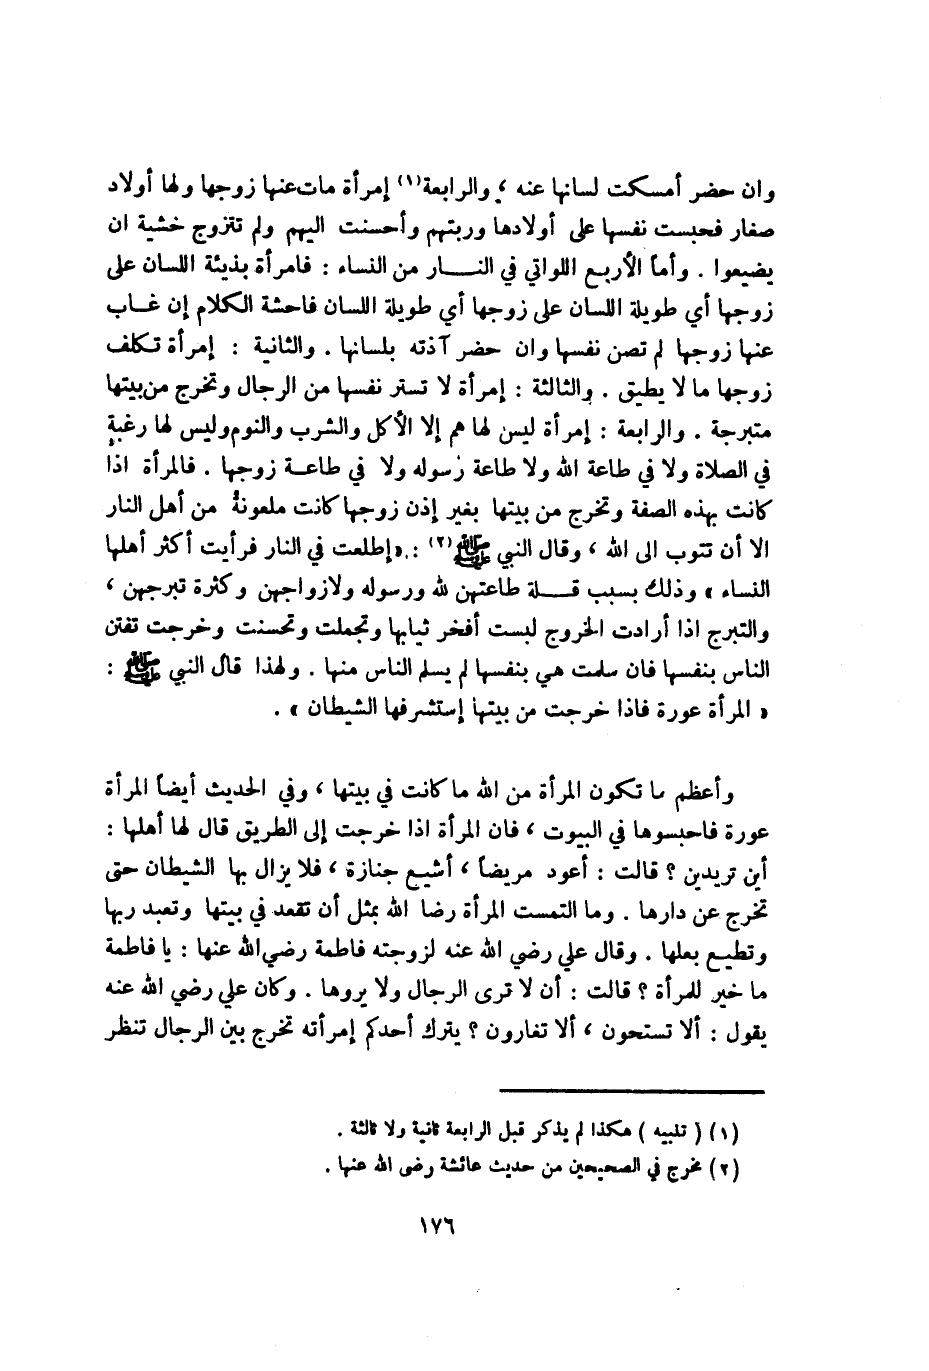 وان حضر أمسكت لسانها عنه ؛ والرابعة(١) إمرأة مات عنها زوجها ولها أولاد
صغار فحبست نفسها على أولادها وربتهم وأحسنت اليهم ولم تتزوج خشية ان
يضيعوا . وأما الأربع اللواتي في النـــار من النساء : فامرأة بذيئة اللسان على
زوجها أي طويلة اللسان على زوجها أي طويلة اللسان فاحشة الكلام إن غـاب
عنها زوجها لم تصن نفسها وان حضر آذته بلسانها . والثانية : إمرأة تكلف
زوجها ما لا يطيق . والثالثة : إمرأة لا تستر نفسها من الرجال وتخرج من بيتها
متبرجة . والرابعة : إمرأة ليس لها هم إلا الأكل والشرب والنوم وليس لها رغبة
في الصلاة ولا في طاعة الله ولا طاعة رسوله ولا في طاعـة زوجها . فالمرأة اذا
كانت بهذه الصفة وتخرج من بيتها بغير إذن زوجها كانت ملعونة من أهل النار
الا أن تتوب الى الله ، وقال النبي ﷺ(٢) : «إطلعت في النار فرأيت أكثر أهلها
النساء » وذلك بسبب قـــلة طاعتهن لله ورسوله ولازواجهن وكثرة تبرجهن ،
والتبرج اذا أرادت الخروج لبست أفخر ثيابها وتجملت وتحسنت وخرجت تفتن
الناس بنفسها فان سلمت هي بنفسها لم يسلم الناس منها . ولهذا قال النبي ﷺ :
« المرأة عورة فاذا خرجت من بيتها إستشرفها الشيطان » .
وأعظم ما تكون المرأة من الله ما كانت في بيتها ، وفي الحديث أيضاً المرأة
عورة فاحبسوها في البيوت ، فان المرأة اذا خرجت إلى الطريق قال لها أهلها :
أين تريدين ؟ قالت : أعود مريضاً ، أشيع جنازة ، فلا يزال بها الشيطان حتى
تخرج عن دارها . وما التمست المرأة رضا الله بمثل أن تقعد في بيتها وتعبد ربها
وتطيع بعلها . وقال علي رضي الله عنه لزوجته فاطمة رضي الله عنها : يا فاطمة
ما خير للمرأة ؟ قالت : أن لا ترى الرجال ولا يروها . وكان علي رضي الله عنه
يقول : ألا تستحون ، ألا تغارون ؟ يترك أحدكم إمرأته تخرج بين الرجال تنظر
(١) ( تنبيه ) هكذا لم يذكر قبل الرابعة ثانية ولا ثالثة .
(٢) مخرج في الصحيحين من حديث عائشة رضى الله عنها .
١٧٦